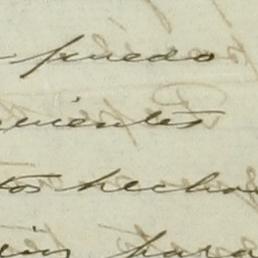 puedo
uientes
tos hechos
para